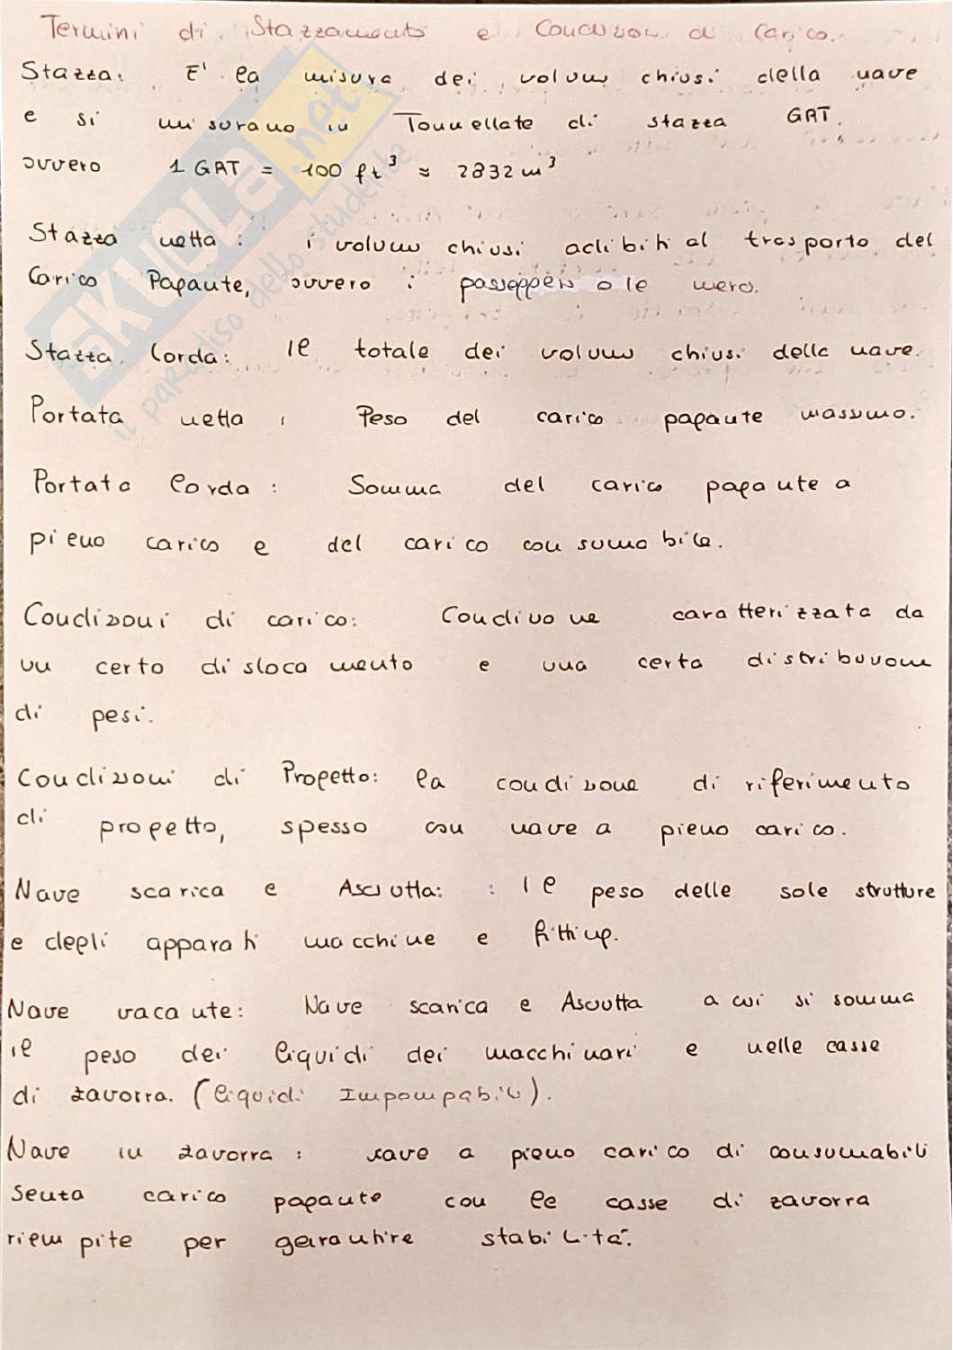 Termini di Stazzamento e Condizioni di Carico.
Stazza: E' la misura dei volumi chiusi della nave
e si misurano in Tonnellate di stazza GRT.
ovvero 1 GRT = 100 ft³ ≈ 2832 m³
Stazza netta: i volumi chiusi adibiti al trasporto del
Carico Pagante, ovvero i passeggeri o le merci.
Stazza lorda: Il totale dei volumi chiusi della nave.
Portata netta: Peso del carico pagante massimo.
Portata lorda: Somma del carico pagante a
pieno carico e del carico consumabile.
Condizioni di carico: Condizione caratterizzata da
un certo dislocamento e una certa distribuzione
di pesi.
Condizioni di Progetto: la condizione di riferimento
di progetto, spesso con nave a pieno carico.
Nave scarica e Asciutta: : Il peso delle sole strutture
e degli apparati macchine e fitting.
Nave vacante: Nave scarica e Asciutta a cui si somma
il peso dei liquidi dei macchinari e nelle casse
di zavorra. (liquidi Impompabili).
Nave in zavorra: nave a pieno carico di consumabili
senza carico pagante con le casse di zavorra
riempite per garantire stabilità.
SKUOLA.net
il paradiso dello studente